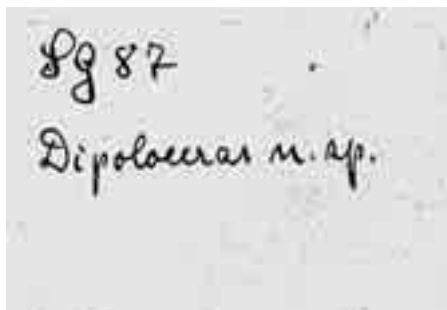 Sg 87
Dipoloceras n. sp.